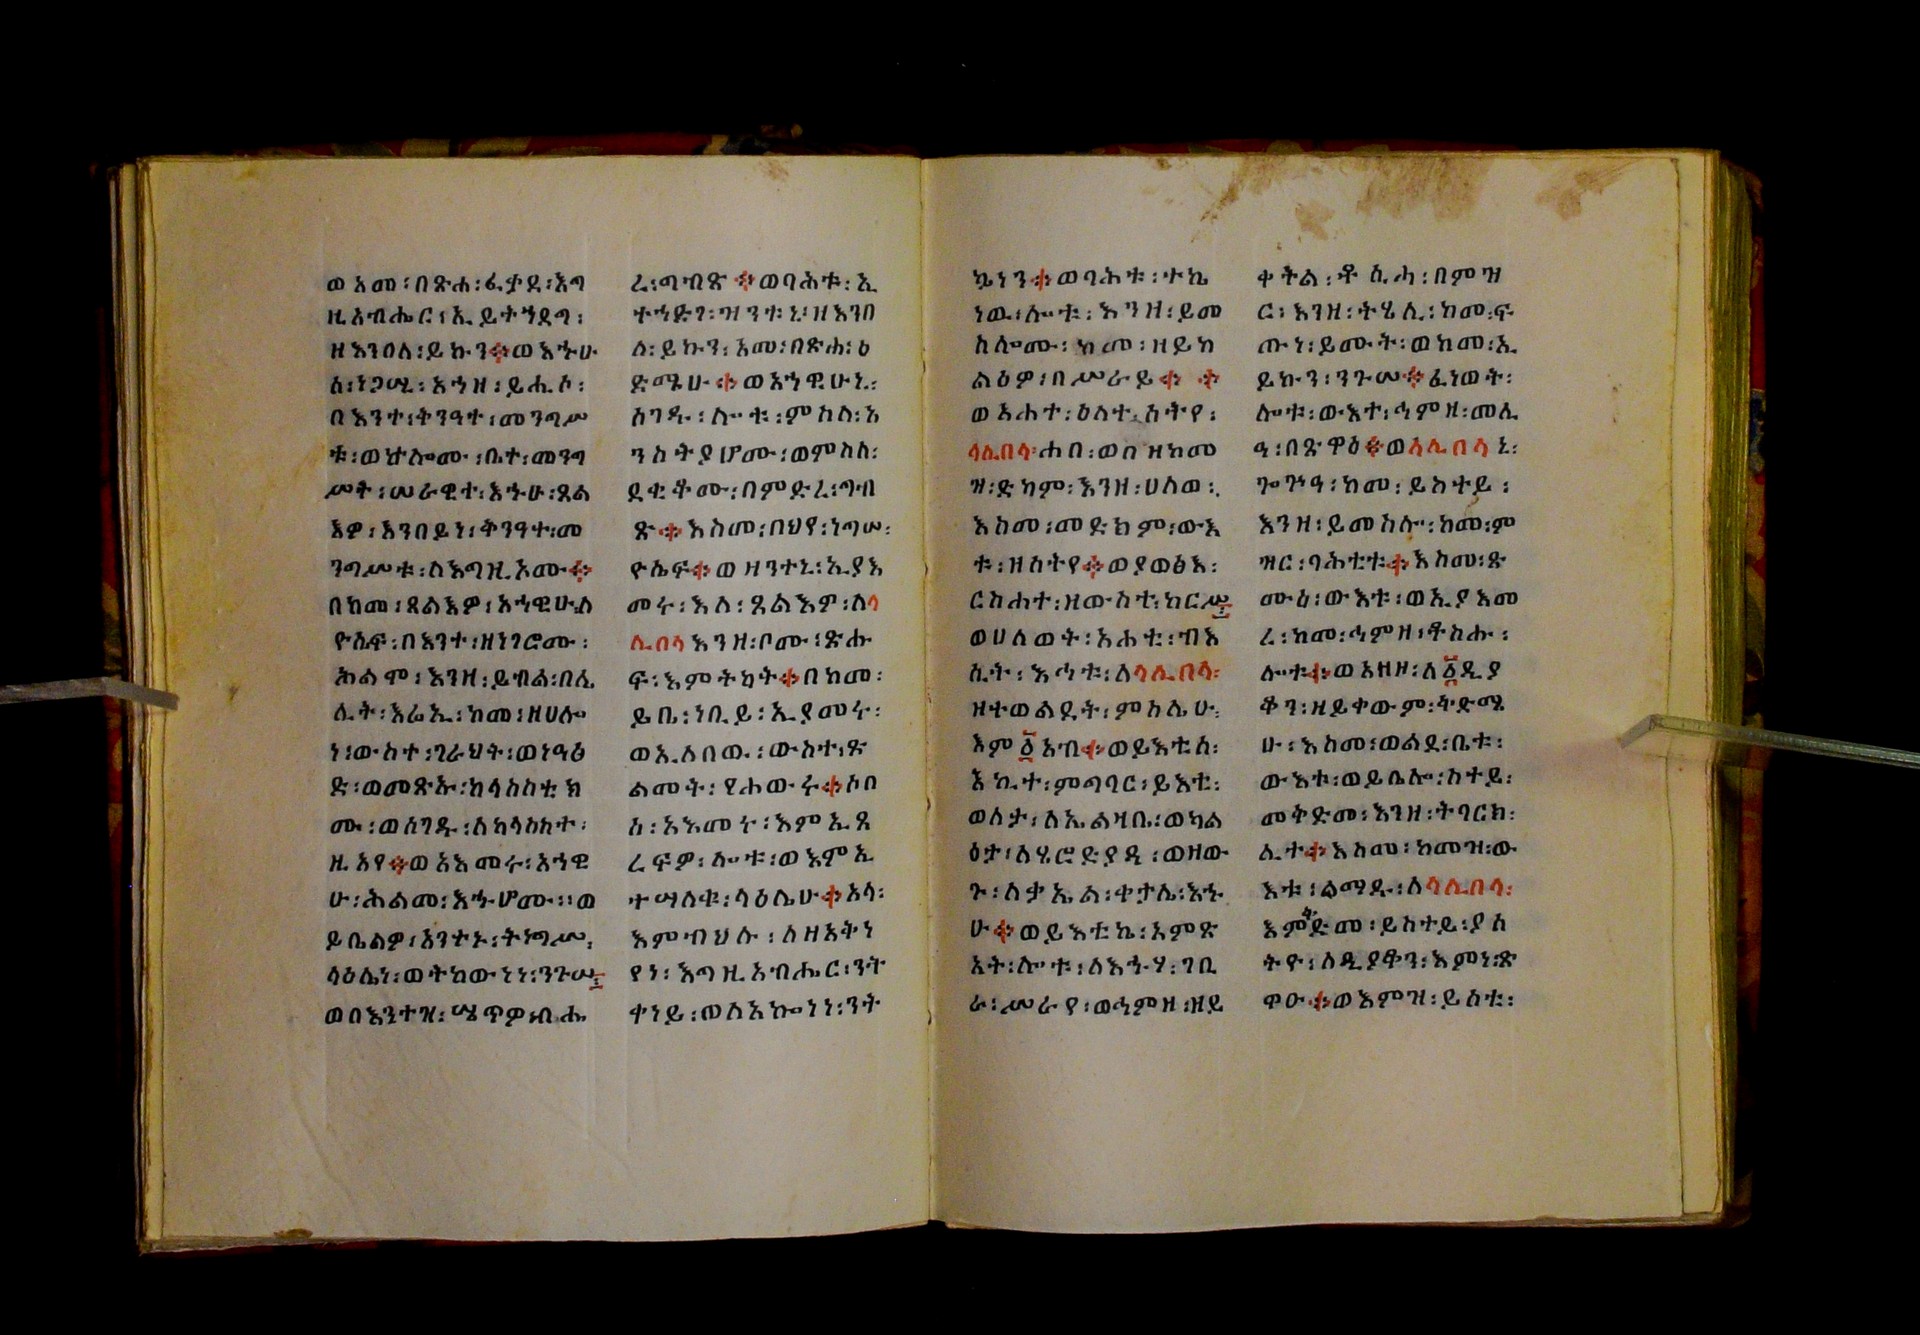 ወአመ፡በጽሐ፡ፈቃደ፡እግ
ዚአብሔር፡ኢይተኀደግ፡
ዘእንበለ፡ይኩን፨ወእኁሁ
ሰ፡ነጋሢ፡አኀዘ፡ይሔሶ፡
በእንተ፡ቅንዓተ፡መንግሥ
ቱ፡ወኵሎሙ፡ቤተ፡መንግ
ሥት፡ሠራዊተ፡እኁሁ፡ጸል
እዎ፡እንበይነ፡ቅንዓተ፡መ
ንግሥቱ፡ለእግዚኦሙ፨
በከመ፡ጸልእዎ፡አኀዊሁ፡ለ
ዮሴፍ፡በእንተ፡ዘነገሮሙ፡
ሕልሞ፡እንዘ፡ይብል፡በሌ
ሊት፡እሬኢ፡ከመ፡ዘሀሎ
ነ፡ውስተ፡ገራህት፡ወነዓፅ
ድ፡ወመጽኡ፡ከላስስቲክ
ሙ፡ወሰገዱ፡ለከላስስተ፡
ዚአየ፨ወአእመሩ፡አኀዊ
ሁ፡ሕልመ፡እኁሆሙ፡፡ወ
ይቤልዎ፡አንተኑ፡ትነግሥ፡
ላዕሌነ፡ወትከውነነ፡ንጉሠ፤
ወበእንተዝ፡ሤጥዎ፡ብሔ
ረ፡ግብጽ፨ወባሕቱ፡ኢ
ተኀድገ፡ዝንቱኒ፡ዘእንበ
ለ፡ይኩን፡አመ፡በጽሐ፡ዕ
ድሜሁ፨ወአኀዊሁኒ፡
ሰገዱ፡ሎቱ፡ምስለ፡አ
ንስትያሆሙ፡ወምስለ፡
ደቂቆሙ፡በምድረ፡ግብ
ጽ፨እስመ፡በህየ፡ነግሠ፡
ዮሴፍ፨ወዝንተኒ፡ኢያእ
መሩ፡እለ፡ጸልእዎ፡ለላ
ሊበላእንዘ፡ቦሙ፡ጽሑ
ፍ፡እምትካት፨በከመ፡
ይቤ፡ነቢይ፡ኢያመሩ፡
ወኢለበዉ፡ውስተ፡ጽ
ልመት፡የሐውሩ፨ሶበ
ሰ፡አእመሩ፡እምኢጸ
ረፍዎ፡ሎቱ፡ወእምኢ
ተሣለቁ፡ላዕሌሁ፨አላ፡
እምብህሉ፡ለዘአቅነ
የነ፡እግዚአብሔር፡ንት
ቀነይ፡ወለአኰነነ፡ንት
ኴነን፨ወባሕቱ፡ተኬ
ነዉ፡ሎቱ፡እንዘ፡ይመ
ስሎሙ፡ከመ፡ዘይክ
ልዕዎ፡በሥራይ፨
ወአሐተ፡ዕለተ፡ሰትየ፡
ላሊበላ፡ሐበ፡ወበዘከመ
ዝ፡ድካም፡እንዘ፡ሀለወ፡
እስመ፡መድክም፡ውእ
ቱ፡ዘሰትየ፨ወያወፅእ፡
ርስሐተ፡ዘውስተ፡ከርሥ፤
ወሀለወት፡አሐቲ፡ብእ
ሲት፡እኅቱ፡ለላሊበላ፡
ዘተወልደት፡ምስሌሁ፡
እም፩አብ፨ወይእቲሰ፡
እኪተ፡ምግባር፡ይእቲ፡
ወለታ፡ለኤልዛቤ፡ወካል
ዕታ፡ለሄሮድያዲ፡ወዘው
ጉ፡ለቃኤል፡ቀታሌ፡እኁ
ሁ፨ወይእቲኬ፡አምጽ
አት፡ሎቱ፡ለእኁሃ፡ገቢ
ራ፡ሥራየ፡ወኅምዘ፡ዘይ
ቀትል፡ቶስሓ፡በምዝ
ር፡እንዘ፡ትሄሊ፡ከመ፡ፍ
ጡነ፡ይሙት፡ወከመ፡ኢ
ይኩን፡ንጉሠ፨ፈነወት፡
ሎቱ፡ውእተ፡ኅምዘ፡መሊ
ዓ፡በጽዋዕ፨ወላሊበላኒ፡
ጐጕዓ፡ከመ፡ይስተይ፡
እንዘ፡ይመስሎ፡ከመ፡ም
ዝር፡ባሕቲቱ፨እስመ፡ጽ
ሙዕ፡ውእቱ፡ወኢያእመ
ረ፡ከመ፡ኅምዘ፡ቶስሑ፡
ሎቱ፨ወአዘዘ፡ለ፩ዲያ
ቆን፡ዘይቀውም፡ቅድሜ
ሁ፡እስመ፡ወልደ፡ቤቱ፡
ውእቱ፡ወይቤሎ፡ስተይ፡
መቅድመ፡እንዘ፡ትባርክ፡
ሊተ፨እስመ፡ከመዝ፡ው
እቱ፡ልማዱ፡ለላሊበላ፡
እምቅድመ፡ይስተይ፡ያሰ
ትዮ፡ለዲያቆን፡እምነ፡ጽ
ዋዑ፨ወእምዝ፡ይሰቲ፡